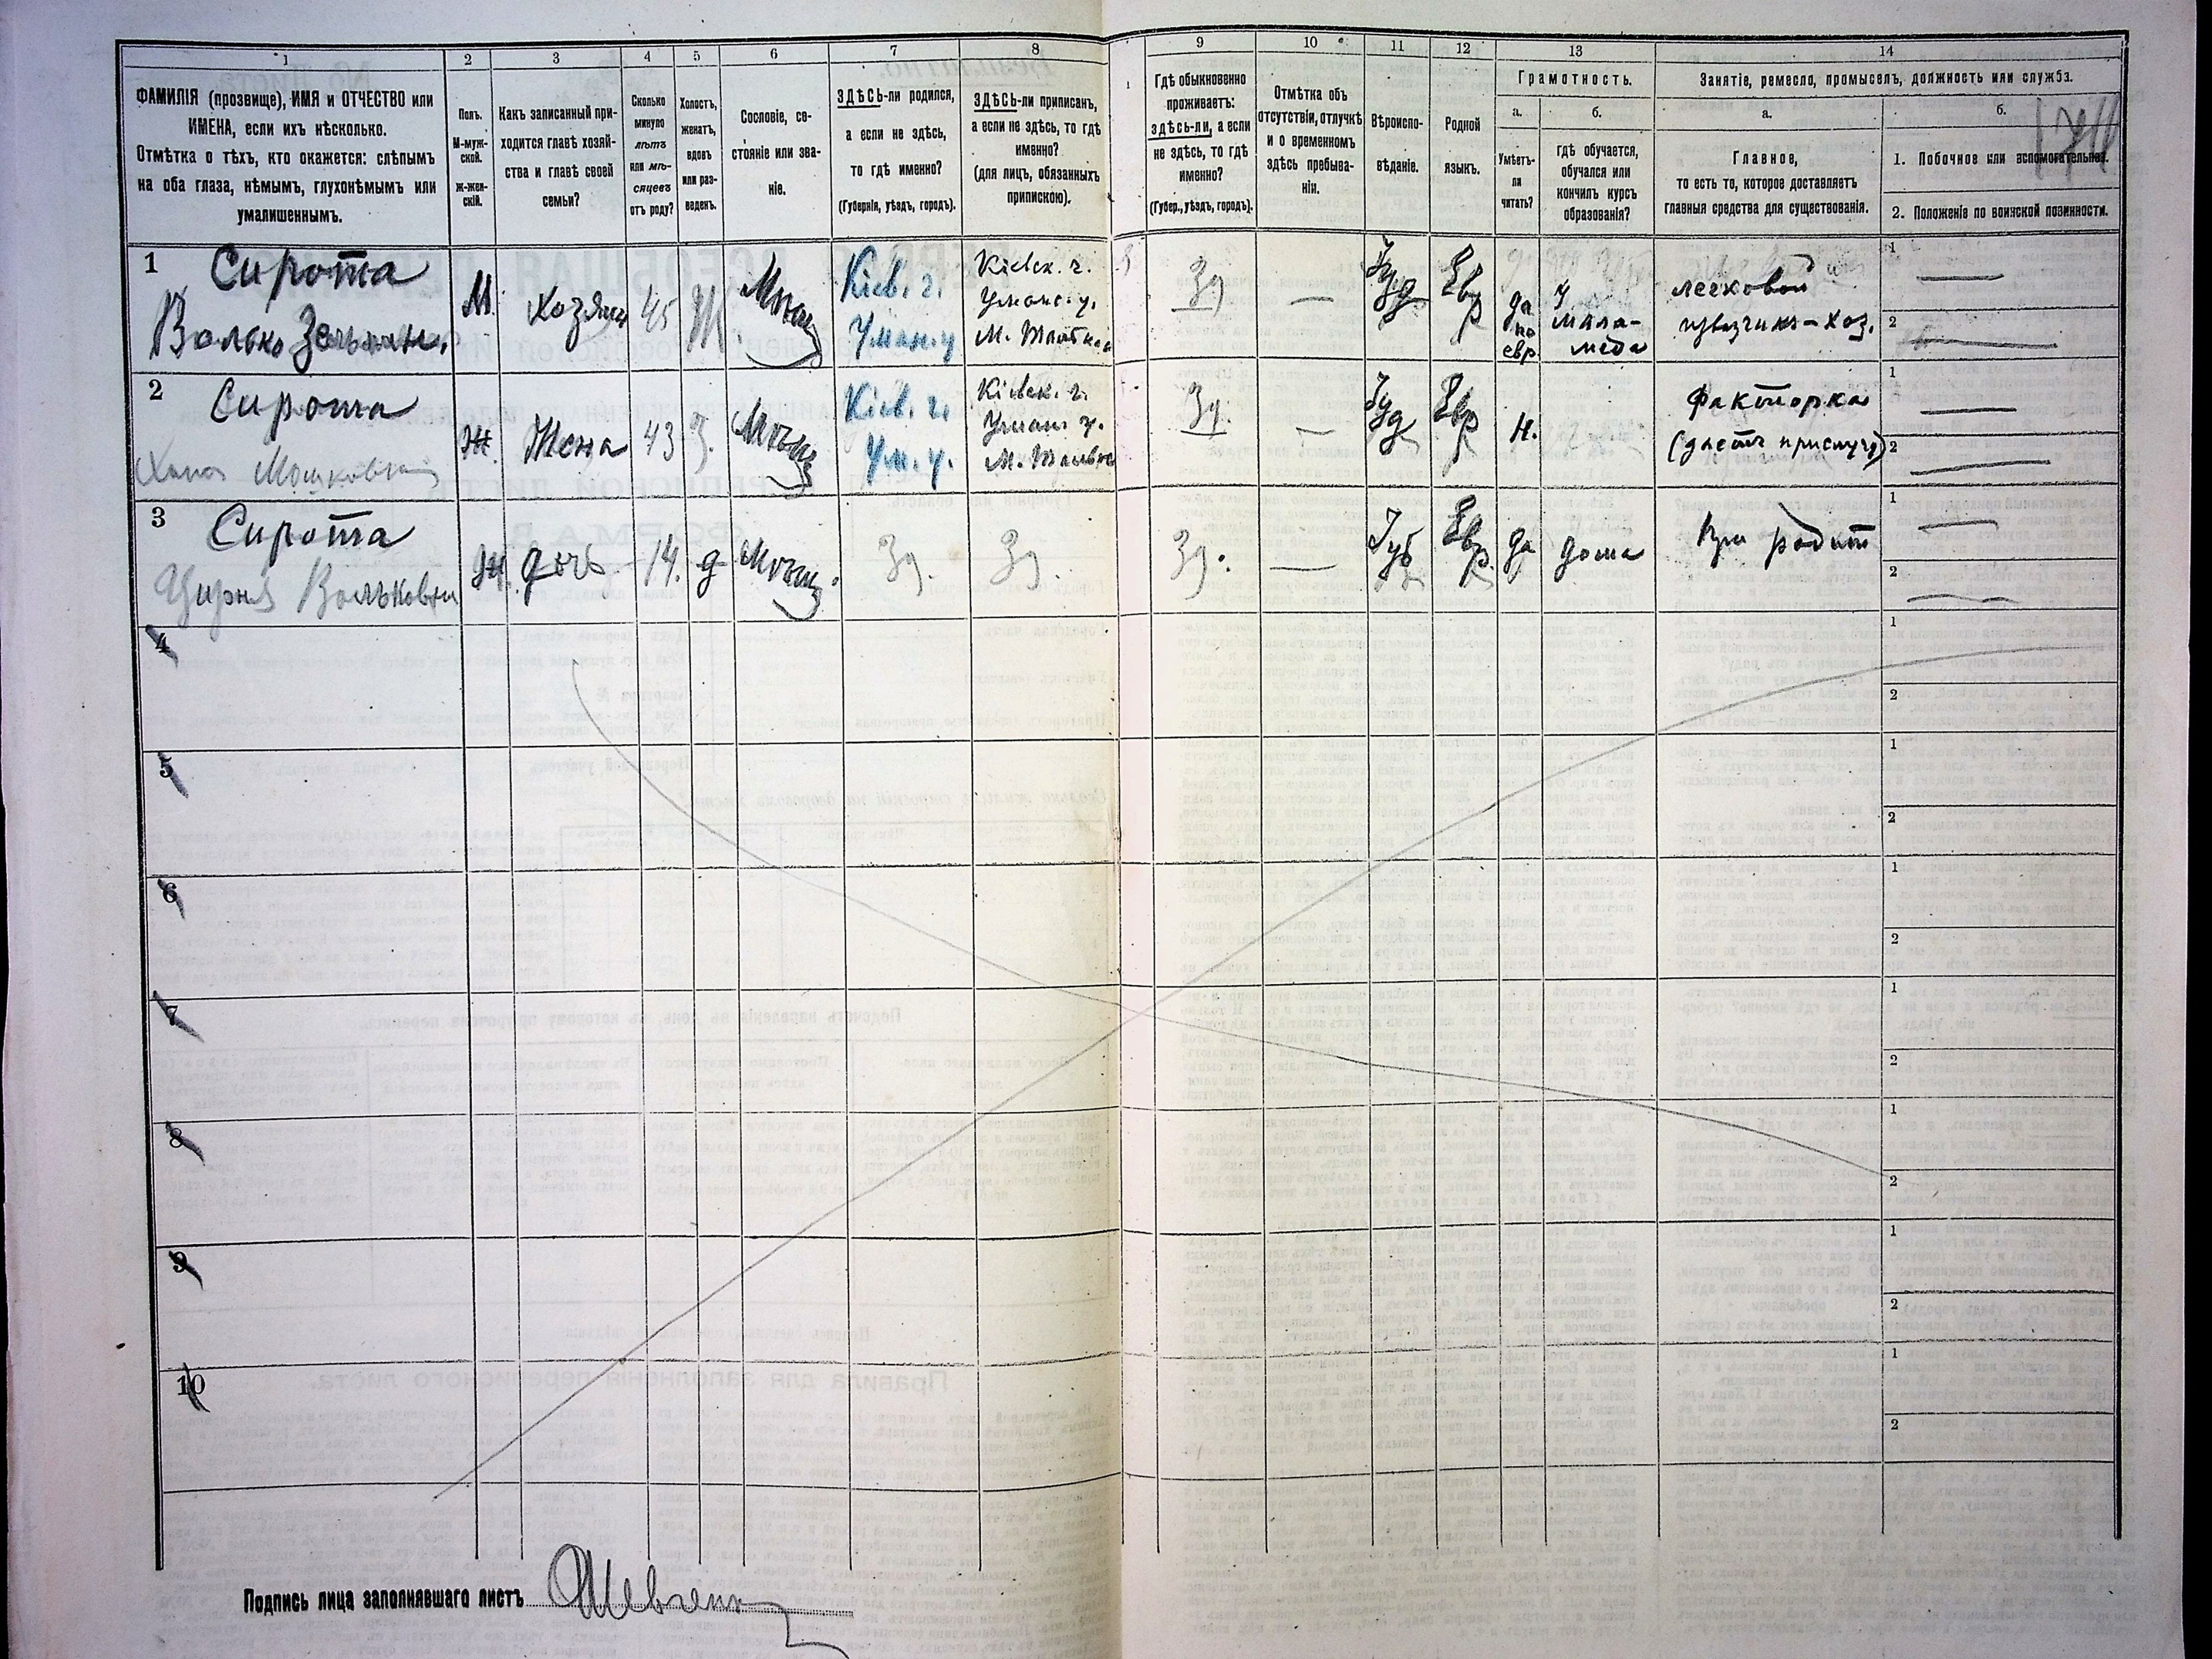 1 2 3 4 5 6 7 8 9 10 11 12 13 14
ФАМИЛІЯ (прозвище), ИМЯ и ОТЧЕСТВО или
ИМЕНА, если ихъ нѣсколько.
Отмѣтка о тѣхъ, кто окажется: слѣпымъ
на оба глаза, нѣмымъ, глухонѣмымъ или
умалишеннымъ.
Полъ.
М-муж-
ской.
ж-жен-
скій.
Какъ записанный при-
ходится главѣ хозяй-
ства и главѣ своей
семьи?
Сколько
минуло
лѣтъ
или мѣ-
сяцевъ
отъ роду?
Холостъ,
женатъ,
вдовъ
или раз-
веденъ.
Сословіе, со-
стояніе или зва-
ніе.
ЗДѢСЬ-ли родился,
а если не здѣсь,
то гдѣ именно?
(Губернія, уѣздъ, городъ).
ЗДѢСЬ-ли приписанъ,
а если не здѣсь, то гдѣ
именно?
(для лицъ, обязанныхъ
припискою).
Гдѣ обыкновенно
проживаетъ:
здѣсь-ли, а если
не здѣсь, то гдѣ
именно?
(Губер., уѣздъ, городъ).
Отмѣтка объ
отсутствіи, отлучкѣ
и о временномъ
здѣсь пребыва-
ніи.
Вѣроиспо-
вѣданіе.
Родной
языкъ.
Грамотность.
а. б.
Умѣетъ-
ли
читать?
гдѣ обучается,
обучался или
кончилъ курсъ
образованія?
Занятіе, ремесло, промыселъ, должность или служба.
а. б.
Главное,
то есть то, которое доставляетъ
главныя средства для существованія.
1. Побочное или вспомогательное.
2. Положеніе по воинской повинности.
1 Сирота
Волько
М. Хозяин 45 Ж.
Кіев. г.
Уман. у
Кіевск. г.
Уманс. у.
Зд — Іуд Евр
да
по
евр
у
мала-
меда
легковой
извозчикъ-хоз.
1 —
2 —
2 Сирота
Хана Мошковна
Ж. Жена 43 З. Мѣщ
Кіев. г.
Ум. у.
Кіевск. г.
Уман. у.
Зд. — Іуд Евр н.
Факторка
(даетъ прислугу)
1 —
2 —
3 Сирота
Вольковна
Ж. дочь 14. д Мѣщ.
Зд. Зд. Зд. — Іуд Евр. да дома При родит
1 —
2 —
4 1
2
5 1
2
6 1
2
7 1
2
8 1
2
9 1
2
10 1
2
Подпись лица заполнявшаго листъ